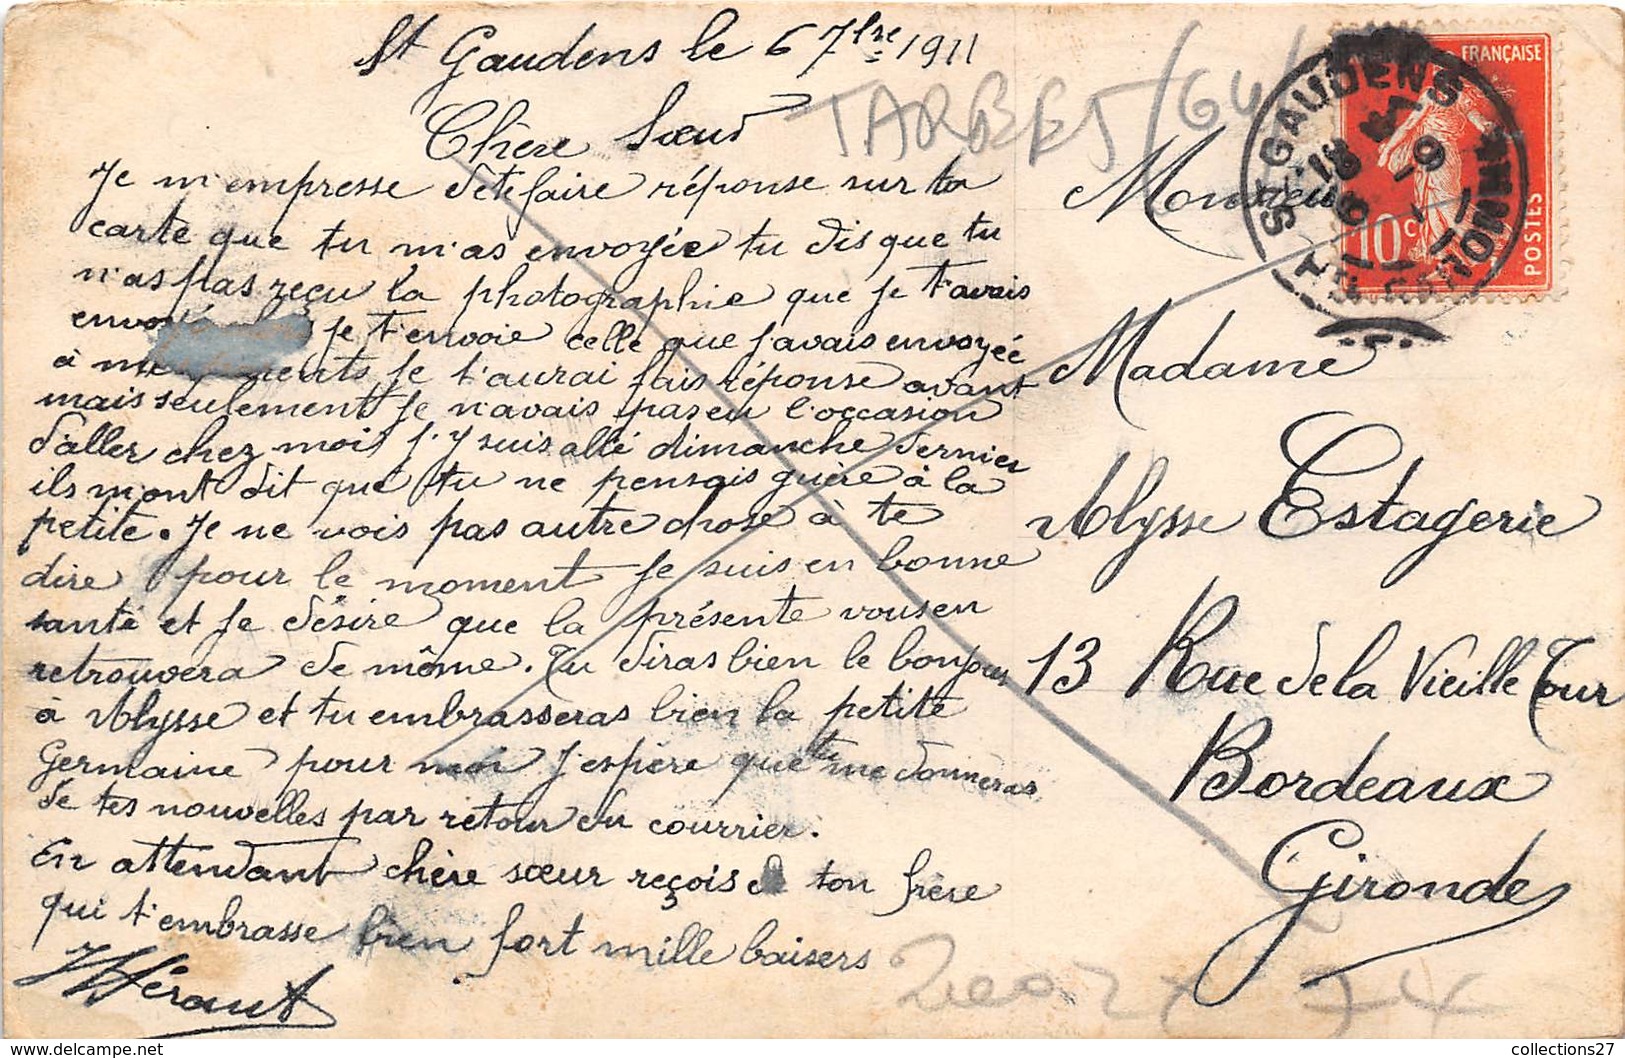 St Gaudens le 6 7bre 1911
Chère Sœur
Je m'empresse de te faire réponse sur ta
carte que tu m'as envoyée tu dis que tu
n'as pas reçu la photographie que je t'avais
envoyée je t'envoie celle que j'avais envoyée
à mes parents je t'aurai fais réponse avant
mais seulement je n'avais pas eu l'occasion
d'aller chez moi j'y suis allé dimanche dernier
ils m'ont dit que tu ne pensais guère à la
petite. Je ne vois pas autre chose à te
dire pour le moment je suis en bonne
santé et je désire que la présente vous en
retrouvera de même. Tu diras bien le bonjour
à Ulysse et tu embrasseras bien la petite
Germaine pour moi j'espère que tu me donneras
de tes nouvelles par retour du courrier.
En attendant chère sœur reçois de ton frère
qui t'embrasse bien fort mille baisers
Héraut
TARBES/64
Monsieur
Madame
Ulysse Estagerie
13 Rue de la Vieille Tour
Bordeaux
Gironde
FRANÇAISE
10c
POSTES
ST GAUDENS
HTE GARONNE
collections27